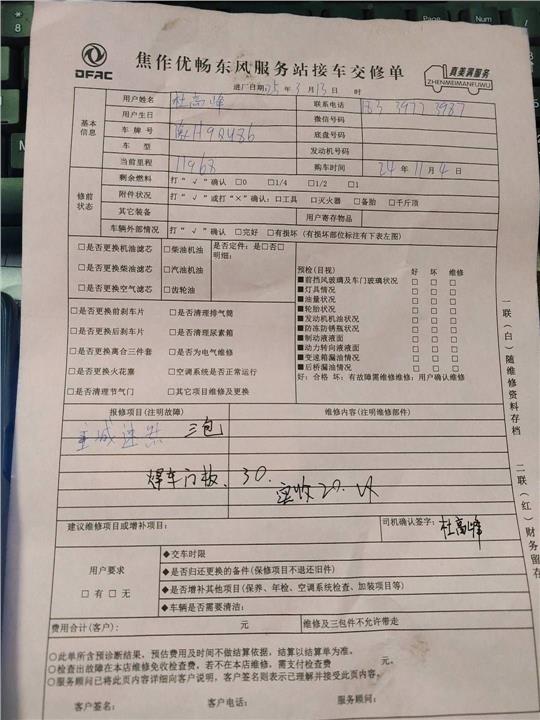 DFAC
焦作优畅东风服务站接车交修单
真美满服务
ZHENMEIMANFUWU
进厂日期:25年3月13日 时
基本信息
用户姓名 杜高峰 联系电话
用户生日 微信号码
车牌号 底盘号码
车型 发动机号码
当前里程 11968 购车时间 24年11月4日
修前状态
剩余燃料 打“√”确认 □0 □1/4 □1/2 □1
附件状况 打“√”或打“×”确认:□工具 □灭火器 □备胎 □千斤顶
其它装备 用户寄存物品
车辆外部情况 打“√”确认 □完好 □有损坏 (有损坏部位标注有下表左图)
□是否更换机油滤芯 □柴油机油 是否定件:是□否□
□是否更换柴油滤芯 □汽油机油 明细:
□是否更换空气滤芯 □齿轮油
□是否更换前刹车片 □是否清理排气筒
□是否更换后刹车片 □是否清理尿素箱
□是否更换离合三件套 □是否为电气维修
□是否更换火花塞 □空调系统是否正常运行
□是否清理节气门 □其它项目维修及更换
预检(目视) 好 坏 维修
■前挡风玻璃及车门玻璃状况 □ □ □
■灯具情况 □ □ □
■油量状况 □ □ □
■轮胎状况 □ □ □
■发动机机油状况 □ □ □
■防冻防锈瓶状况 □ □ □
■制动液液面 □ □ □
■动力转向液液面 □ □ □
■变速箱漏油情况 □ □ □
■后桥漏油情况 □ □ □
好:合格 坏:有故障需维修维修:用户确认维修
报修项目(注明故障) 维修内容(注明维修部件)
三包
焊车门板、30.
实收20.
建议维修项目或增补项目: 司机确认签字: 杜高峰
用户要求
□有 □无
◆交车时限
◆是否归还更换的备件(保修项目不退还旧件)
◆是否增补其他项目(保养、年检、空调系统检查、加装项目等)
◆车辆是否需要清洁:
费用合计(客户): 元 维修及三包件不允许带走
○此单所含预诊断结果,预估费用及时间不做结算依据,结算以结算单为准。
○检查出故障在本店维修免收检查费,若不在本店维修,需支付检查费 元。
○服务顾问已将此页内容详细向客户说明,客户签名则表示已理解并接受此页内容。
客户签名: 客户电话: 服务顾问:
一联(白)随维修资料存档
二联(红)财务留存